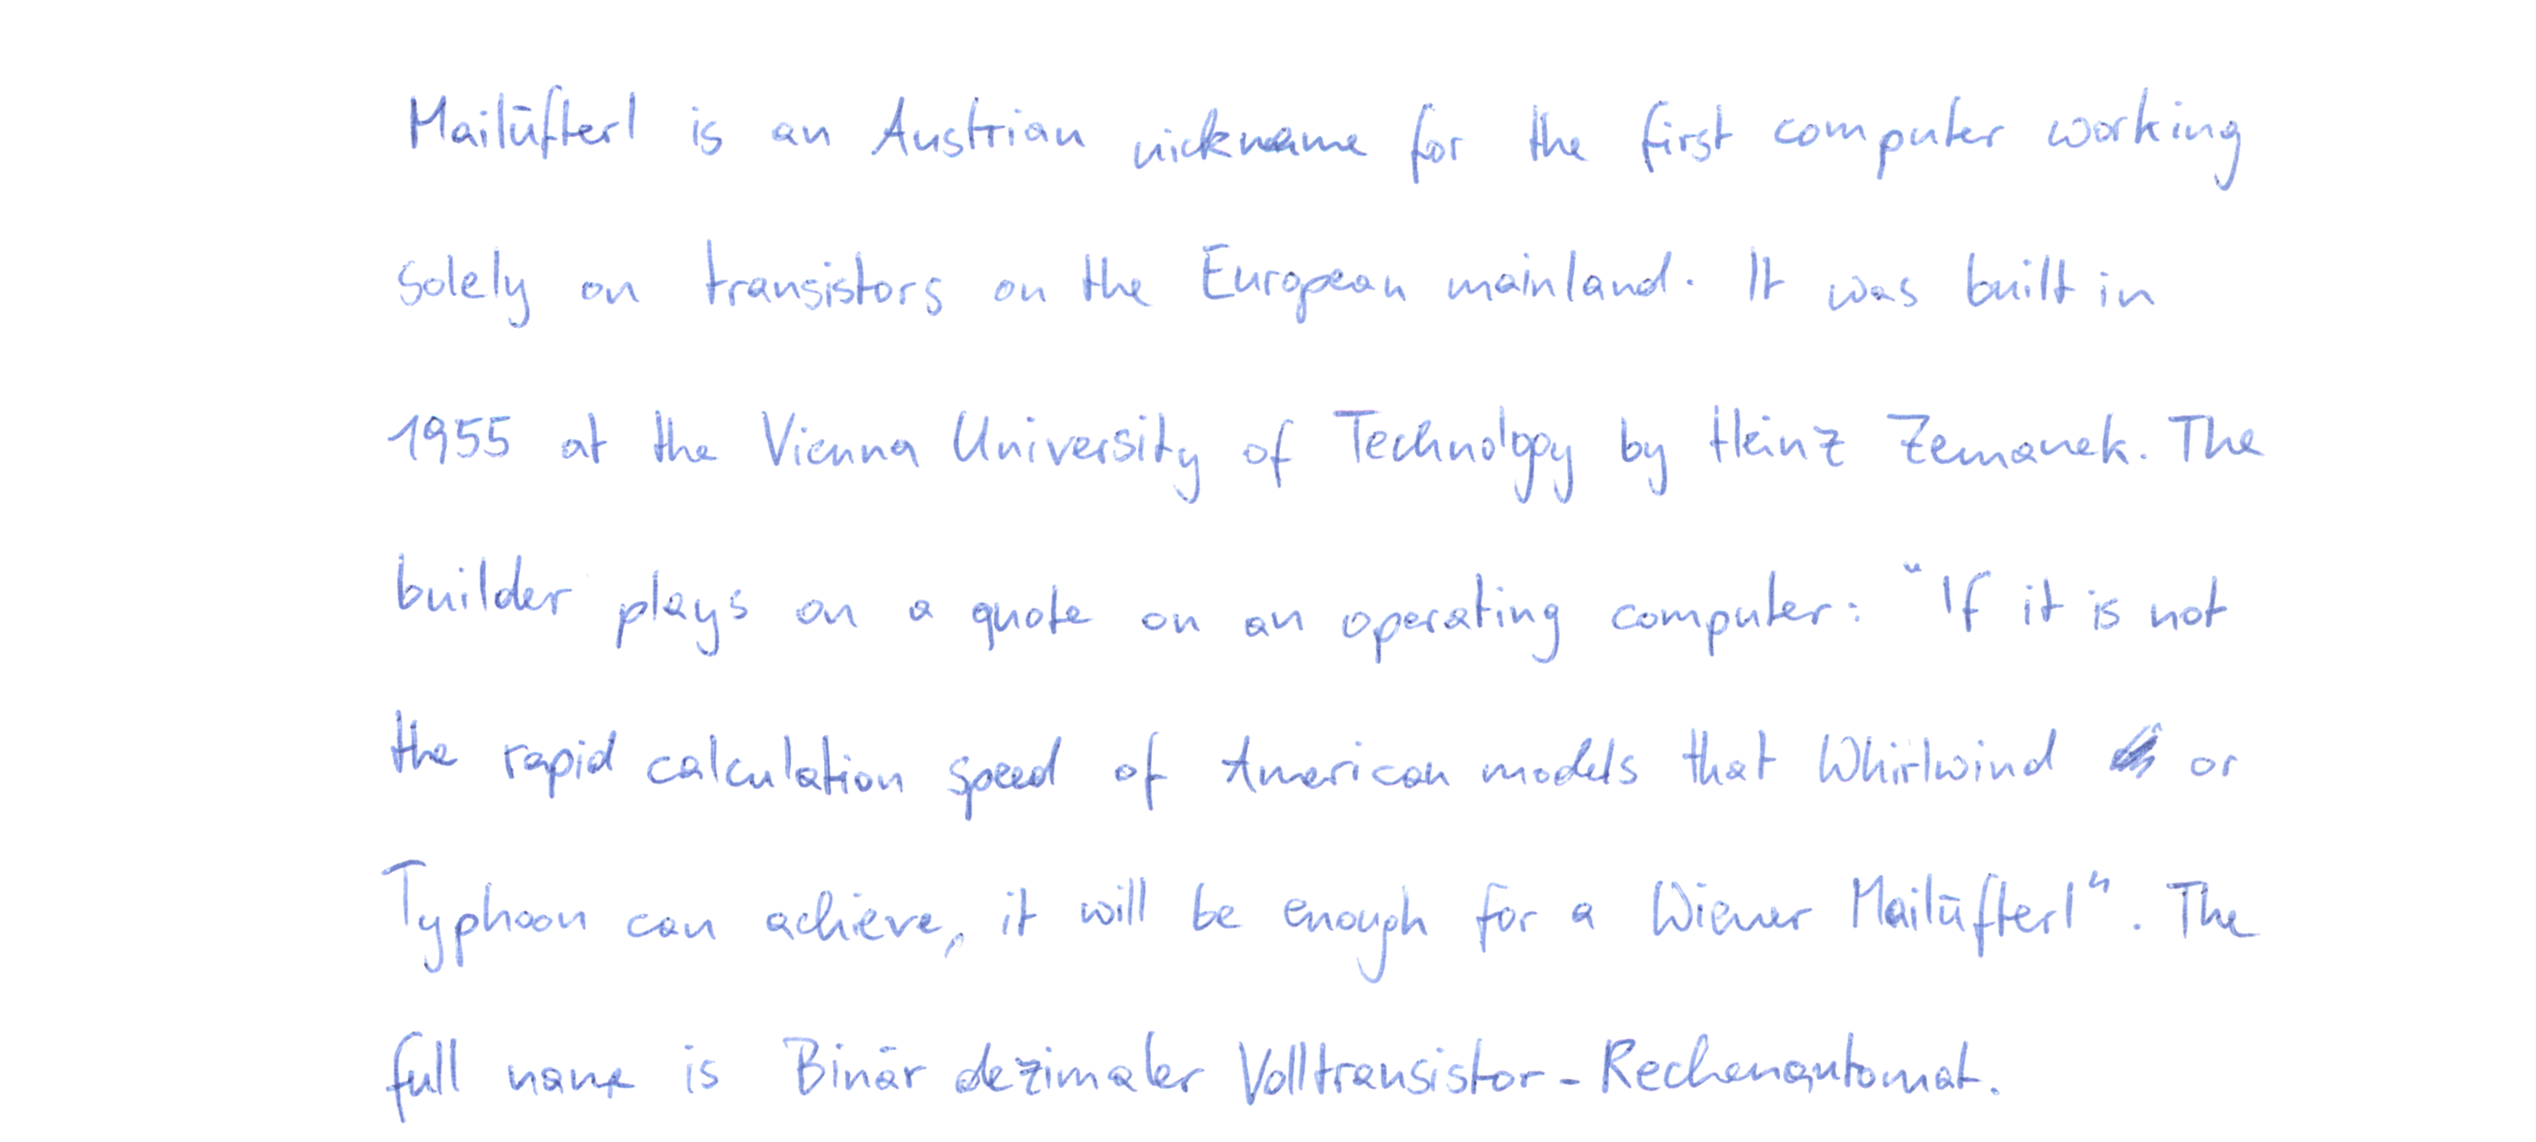 Mailüfterl is an Austrian nickname for the first computer working
solely on transistors on the European mainland. It was built in
1955 at the Vienna University of Technology by Heinz Zemanek. The
builder plays on a quote on an operating computer: "If it is not
the rapid calculation speed of American models that Whirlwind or
Typhoon can achieve, it will be enough for a Wiener Mailüfterl". The
full name is Binär dezimaler Volltransistor-Rechenautomat.